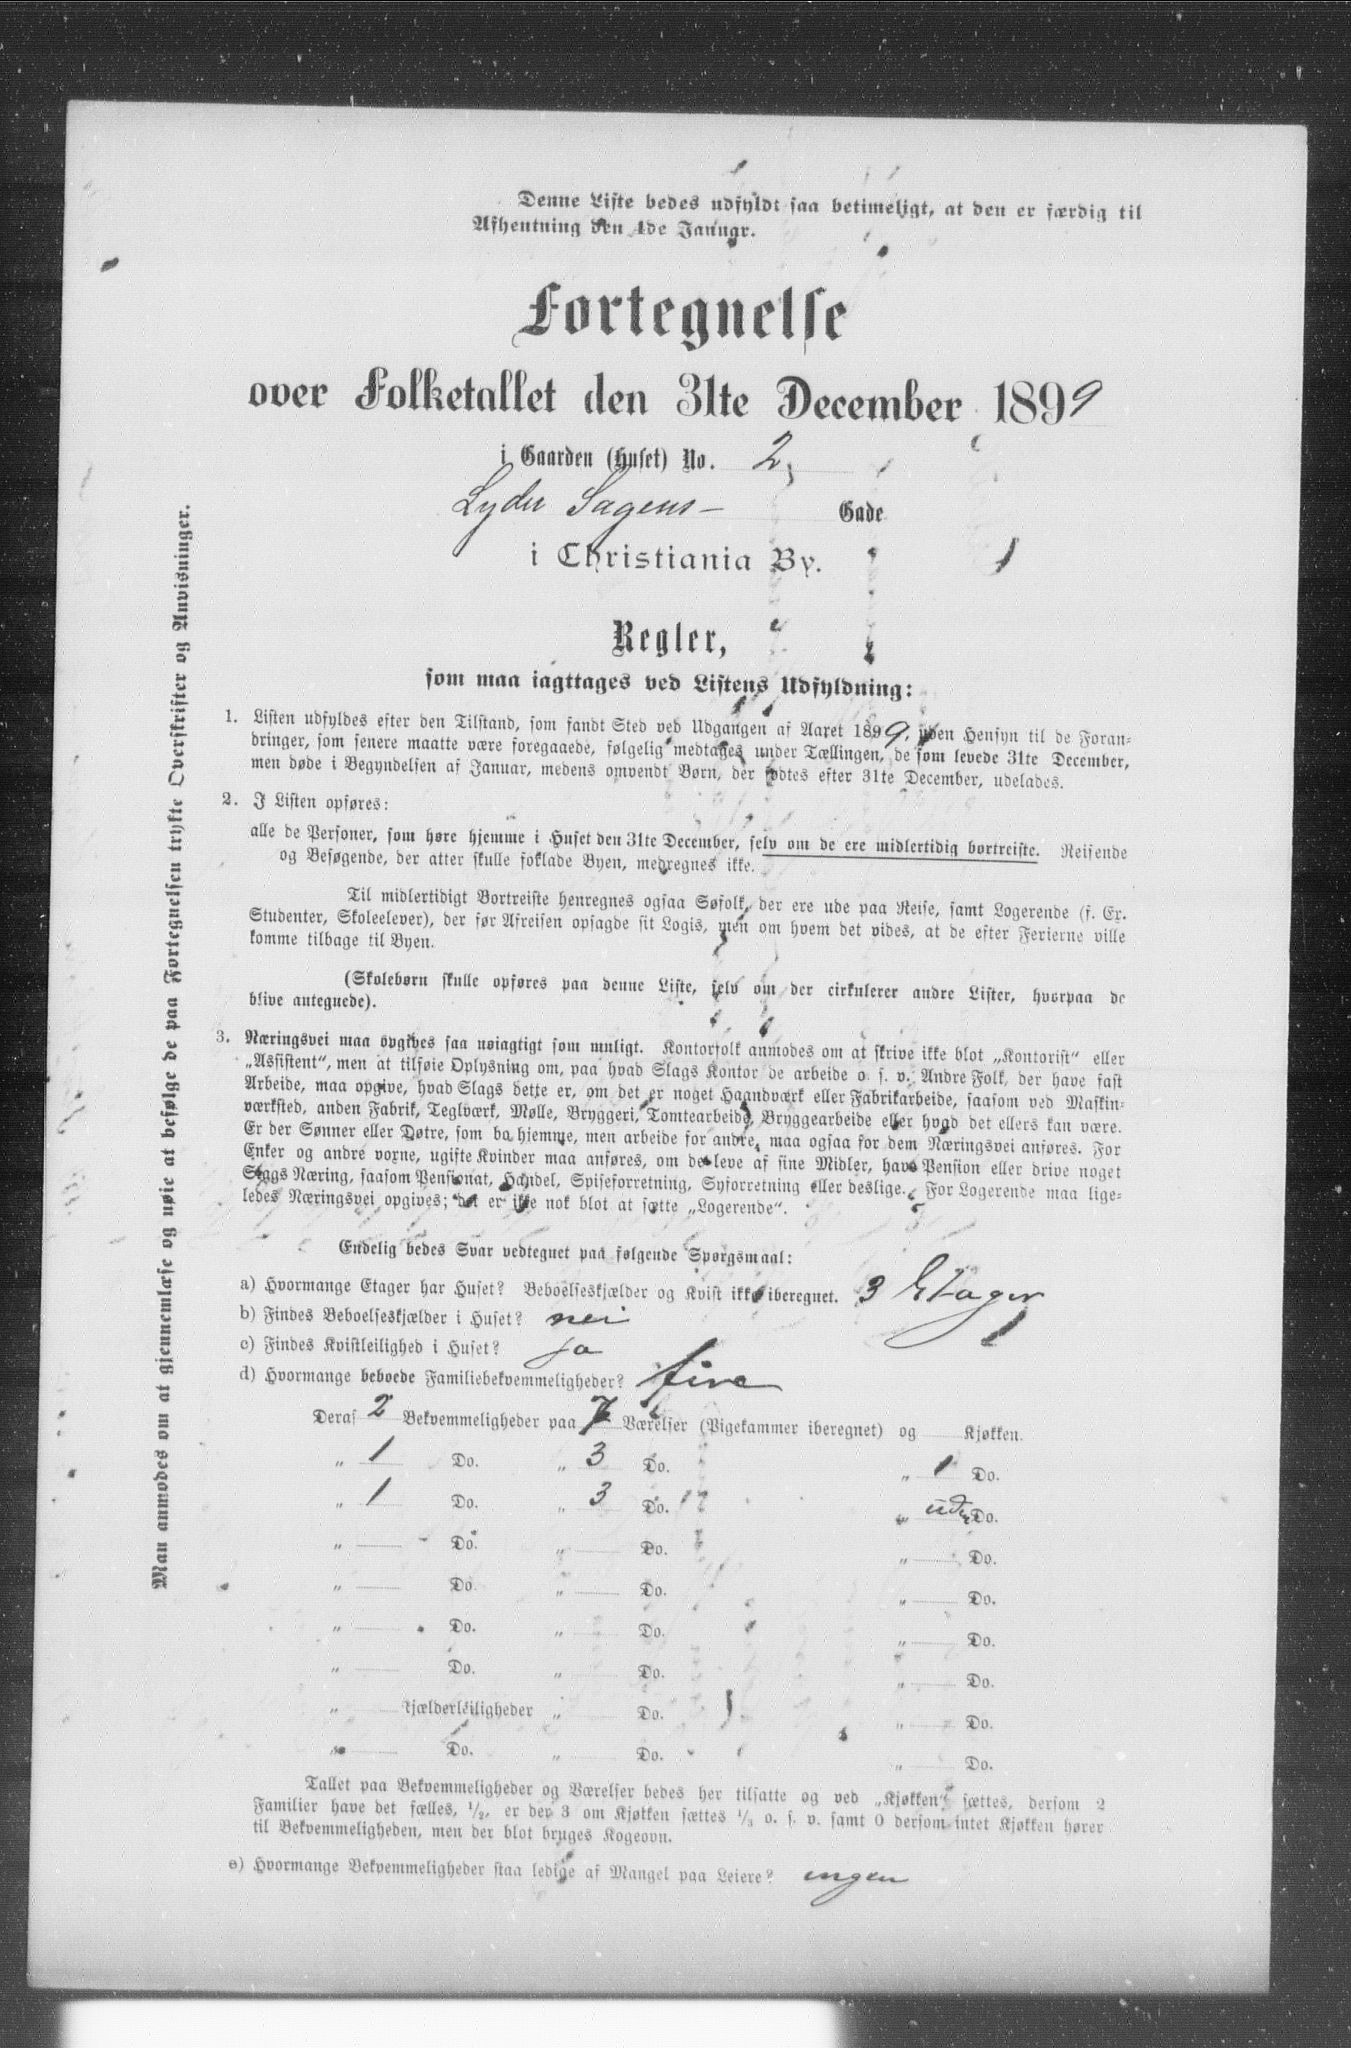 Denne Liste bedes udfyldt saa betimeligt, at den er færdig til
Afhentning den 4de Januar.
Fortegnelse
over Folketallet den 31te December 1899
i Gaarden (Huset) No. 2,
Lyder Sagens- Gade
i Christiania By.
Regler,
som maa iagttages ved Listens Udfyldning:
1. Listen udfyldes efter den Tilstand, som fandt Sted ved Udgangen af Aaret 1899, uden Hensyn til de Foran-
dringer, som senere maatte være foregaaede, følgelig medtages under Tællingen, de som levede 31te December,
men døde i Begyndelsen af Januar, medens omvendt Børn, der fødtes efter 31te December, udelades.
2. I Listen opføres:
alle de Personer, som høre hjemme i Huset den 31te December, selv om de ere midlertidig bortreiste. Reisende
og Besøgende, der atter skulle foklade Byen, medregnes ikke.
Til midlertidigt Bortreiste henregnes ogsaa Søfolk, der ere ude paa Reise, samt Logerende (f. Ex.
Studenter, Skoleelever), der før Afreisen opsagde sit Logis, men om hvem det vides, at de efter Ferierne ville
komme tilbage til Byen.
(Skolebørn skulle opføres paa denne Liste, selv om der cirkulerer andre Lister, hvorpaa de
blive antegnede).
3. Næringsvei maa opgives saa nøiagtigt som muligt. Kontorfolk anmodes om at skrive ikke blot „Kontorist“ eller
„Assistent“, men at tilføie Oplysning om, paa hvad Slags Kontor de arbeide o. s. v. Andre Folk, der have fast
Arbeide, maa opgive, hvad Slags dette er, om det er noget Haandværk eller Fabrikarbeide, saasom ved Maskin-
værksted, anden Fabrik, Teglværk, Mølle, Bryggeri, Tomtearbeide, Bryggearbeide eller hvad det ellers kan være.
Er der Sønner eller Døtre, som bo hjemme, men arbeide for andre, maa ogsaa for dem Næringsvei anføres. For
Enker og andre voxne, ugifte Kvinder maa anføres, om de leve af sine Midler, have Pension eller drive noget
Slags Næring, saasom Pensionat, Handel, Spiseforretning, Syforretning eller deslige. For Logerende maa lige-
ledes Næringsvei opgives; det er ikke nok blot at sætte „Logerende“.
Endelig bedes Svar vedtegnet paa følgende Spørgsmaal:
a) Hvormange Etager har Huset? Beboelseskjælder og Kvist ikke iberegnet. 3 Etager
b) Findes Beboelseskjælder i Huset? nei
c) Findes Kvistleilighed i Huset? ja
d) Hvormange beboede Familiebekvemmeligheder? fire
Deraf 2 Bekvemmeligheder paa 7 Værelser (Pigekammer iberegnet) og Kjøkken.
„ 1 Do. „ 3 Do. „ 1 Do.
„ 1 Do. „ 3 Do. „ uden Do.
„ Do. „ Do. „ Do.
„ Do. „ Do. „ Do.
„ Do. „ Do. „ Do.
„ Do. „ Do. „ Do.
„ Kjælderleiligheder „ Do. „ Do.
„ Do. „ Do. „ Do.
Tallet paa Bekvemmeligheder og Værelser bedes her tilsatte og ved „Kjøkken“ sættes, dersom 2
Familier have det fælles, 1/2, er der 3 om Kjøkken sættes 1/3 o. s. v. samt 0 dersom intet Kjøkken hører
til Bekvemmeligheden, men der blot bruges Kogeovn.
e) Hvormange Bekvemmeligheder staa ledige af Mangel paa Leiere? ingen
Man anmodes om at gjennemlæse og nøie at befølge de paa Fortegnelsen trykte Overskrifter og Anvisninger.